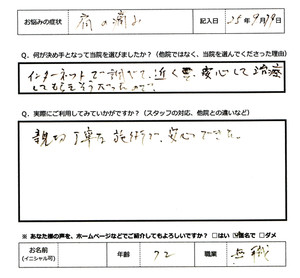 お悩みの症状 肩の痛み 記入日 25年9月19日
Q. 何が決め手となって当院を選びましたか？（他院ではなく、当院を選んでくださった理由）
インターネットで調べて、近く、安心して治療
してもらえそうだったので。
Q. 実際にご利用してみていかがですか？（スタッフの対応、他院との違いなど）
親切丁寧な施術で、安心できた。
※ あなた様の声を、ホームページなどでご紹介してもよろしいですか？ □はい ☑匿名で □ダメ
お名前 年齢 72 職業 無職
(イニシャル可)